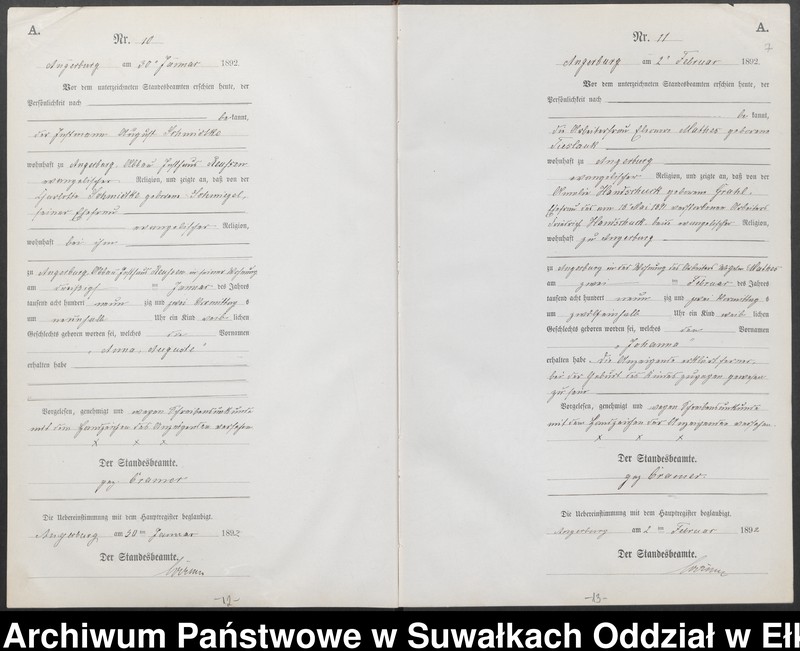 A.
Nr. 10
Angerburg am 30ᵗ Januar 1892
Vor dem unterzeichneten Standesbeamten erschien heute, der
Persönlichkeit nach
be kannt,
der August Schmidtke
wohnhaft zu Angerburg
evangelischer Religion, und zeigte an, daß von der
Schmidtke geborene
seiner Ehefrau
evangelischer Religion,
wohnhaft bei ihm
zu Angerburg in seiner Wohnung
am dreißigsten Januar des Jahres
tausend acht hundert neun zig und zwei Vormittag s
um neuneinhalb Uhr ein Kind weib lichen
Geschlechts geboren worden sei, welches die Vornamen
„Anna, Auguste“
erhalten habe
Vorgelesen, genehmigt und wegen Schreibensunkunde
mit dem Handzeichen des Anzeigenden versehen
x x x
Der Standesbeamte.
gez Cramer
Die Uebereinstimmung mit dem Hauptregister beglaubigt.
Angerburg am 30 ten Januar 1892
Der Standesbeamte.
-12-
A.
7
Nr. 11
Angerburg am 2ᵗ Februar 1892
Vor dem unterzeichneten Standesbeamten erschien heute, der
Persönlichkeit nach
be kannt,
die Arbeiterfrau Mathes geborene
wohnhaft zu Angerburg
evangelischer Religion, und zeigte an, daß von der
Amalie Handschuck geborene Grohl,
Ehefrau des am 18 Mai 1891 verstorbenen Arbeiters
Friedrich Handschuck, evangelischer Religion,
wohnhaft zu Angerburg
zu Angerburg in der Wohnung des Arbeiters Mathes
am zwei ten Februar des Jahres
tausend acht hundert neun zig und zwei Vormittag s
um zwölfeinhalb Uhr ein Kind weib lichen
Geschlechts geboren worden sei, welches den Vornamen
„Johanna“
erhalten habe. Die Anzeigende erklärt ferner,
bei der Geburt des Kindes zugegen gewesen
zu sein
Vorgelesen, genehmigt und wegen Schreibensunkunde
mit dem Handzeichen der Anzeigenden versehen.
x x x
Der Standesbeamte.
gez Cramer.
Die Uebereinstimmung mit dem Hauptregister beglaubigt.
Angerburg am 2 ten Februar 1892
Der Standesbeamte.
-13-
Archiwum Państwowe w Suwałkach Oddział w Ełk